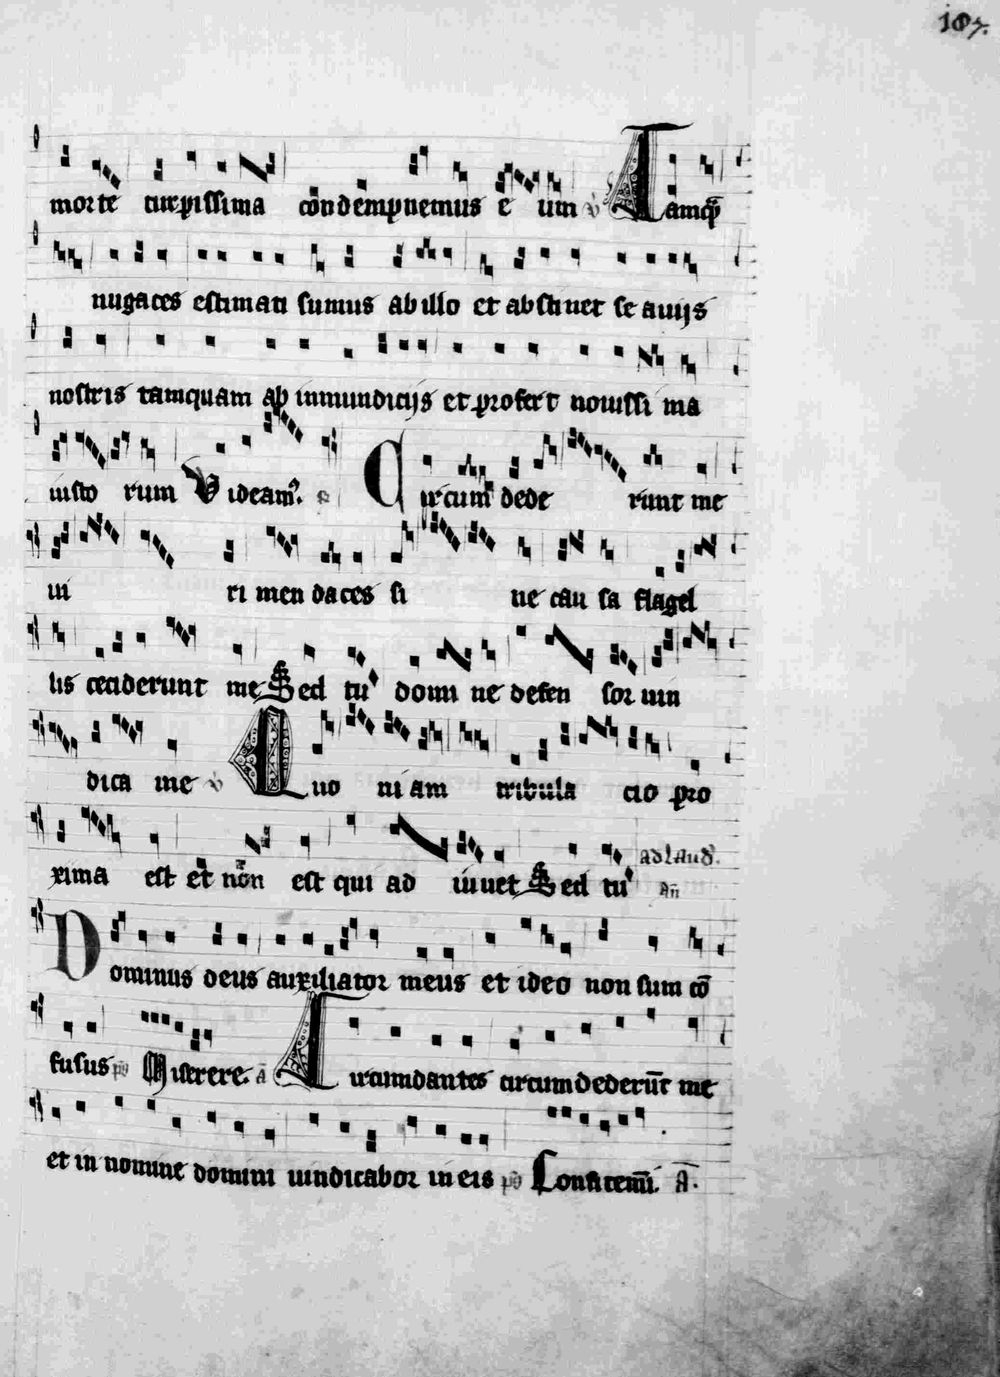 187.
morte turpissima condempnemus e um v Tamq̄
nugaces estimati sumus ab illo et abstinet se a uijs
nostris tamquam ab inmundicijs et profert nouissi ma
iusto rum Videam9. Circum dede runt me
ui ri men daces si ne cau sa flagel
lis ceciderunt me Sed tu domi ne defen sor uin
dica me v Quo ni am tribula cio pro
xima est et non est qui ad iuuet Sed tu ad laud.
an̄
Dominus deus auxiliator meus et ideo non sum cō
fusus ps Miserere. ā Circumdantes circumdederūt me
et in nomine domini uindicabor in eis ps Confitemī. A.